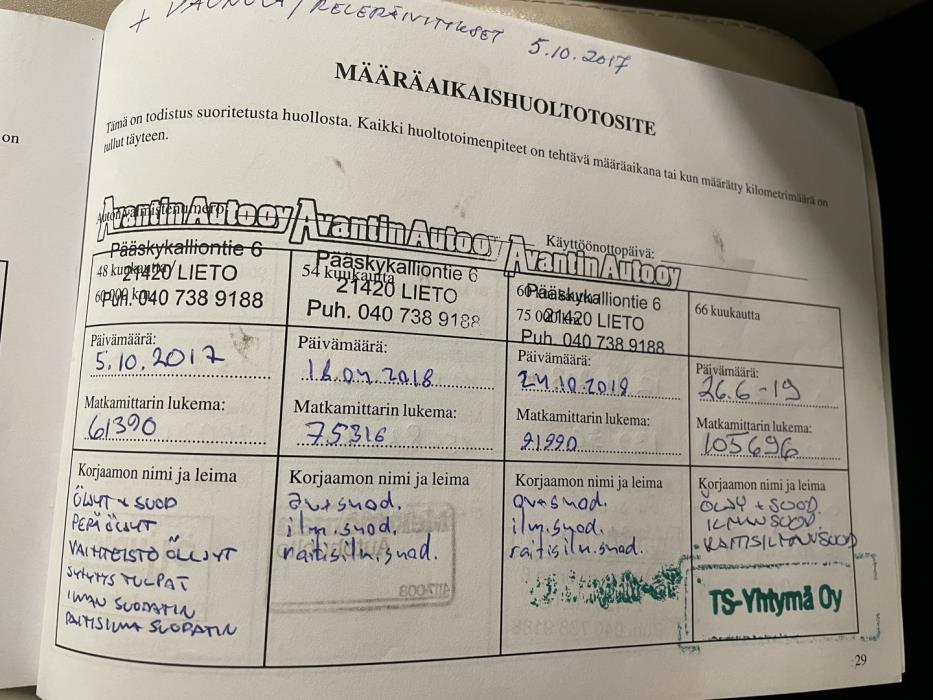 + VAUNU / RELEPÄIVITYKSET 5.10.2017
MÄÄRÄAIKAISHUOLTOTOSITE
Tämä on todistus suoritetusta huollosta. Kaikki huoltotoimenpiteet on tehtävä määräaikana tai kun määrätty kilometrimäärä on
tullut täyteen.
on
Auton valmistenumero
Käyttöönottopäivä:
Avantin Auto oy
Pääskykalliontie 6
21420 LIETO
Puh. 040 738 9188
48 kuukautta
60 000 km
Päivämäärä:
5.10.2017
Matkamittarin lukema:
61390
Korjaamon nimi ja leima
ÖLJYT + SUOD
PERÄÖLJYT
VAIHTEISTO ÖLJYT
SYTYTYS TULPAT
ILMAN SUODATIN
RAITISILMA SUODATIN
Avantin Auto oy
Pääskykalliontie 6
21420 LIETO
Puh. 040 738 9188
54 kuukautta
Päivämäärä:
18.04.2018
Matkamittarin lukema:
75316
Korjaamon nimi ja leima
öv+suod.
ilm.suod.
raitisilm.suod.
Avantin Auto oy
Pääskykalliontie 6
21420 LIETO
Puh. 040 738 9188
60 kuukautta
75 000 km
Päivämäärä:
24.10.2018
Matkamittarin lukema:
91990
Korjaamon nimi ja leima
öv+suod.
ilm.suod.
raitisilm.suod.
66 kuukautta
Päivämäärä:
26.6-19
Matkamittarin lukema:
105696
Korjaamon nimi ja leima
ÖLJY + SUOD.
ILMANSUOD.
RAITISILMANSUOD
TS-Yhtymä Oy
29